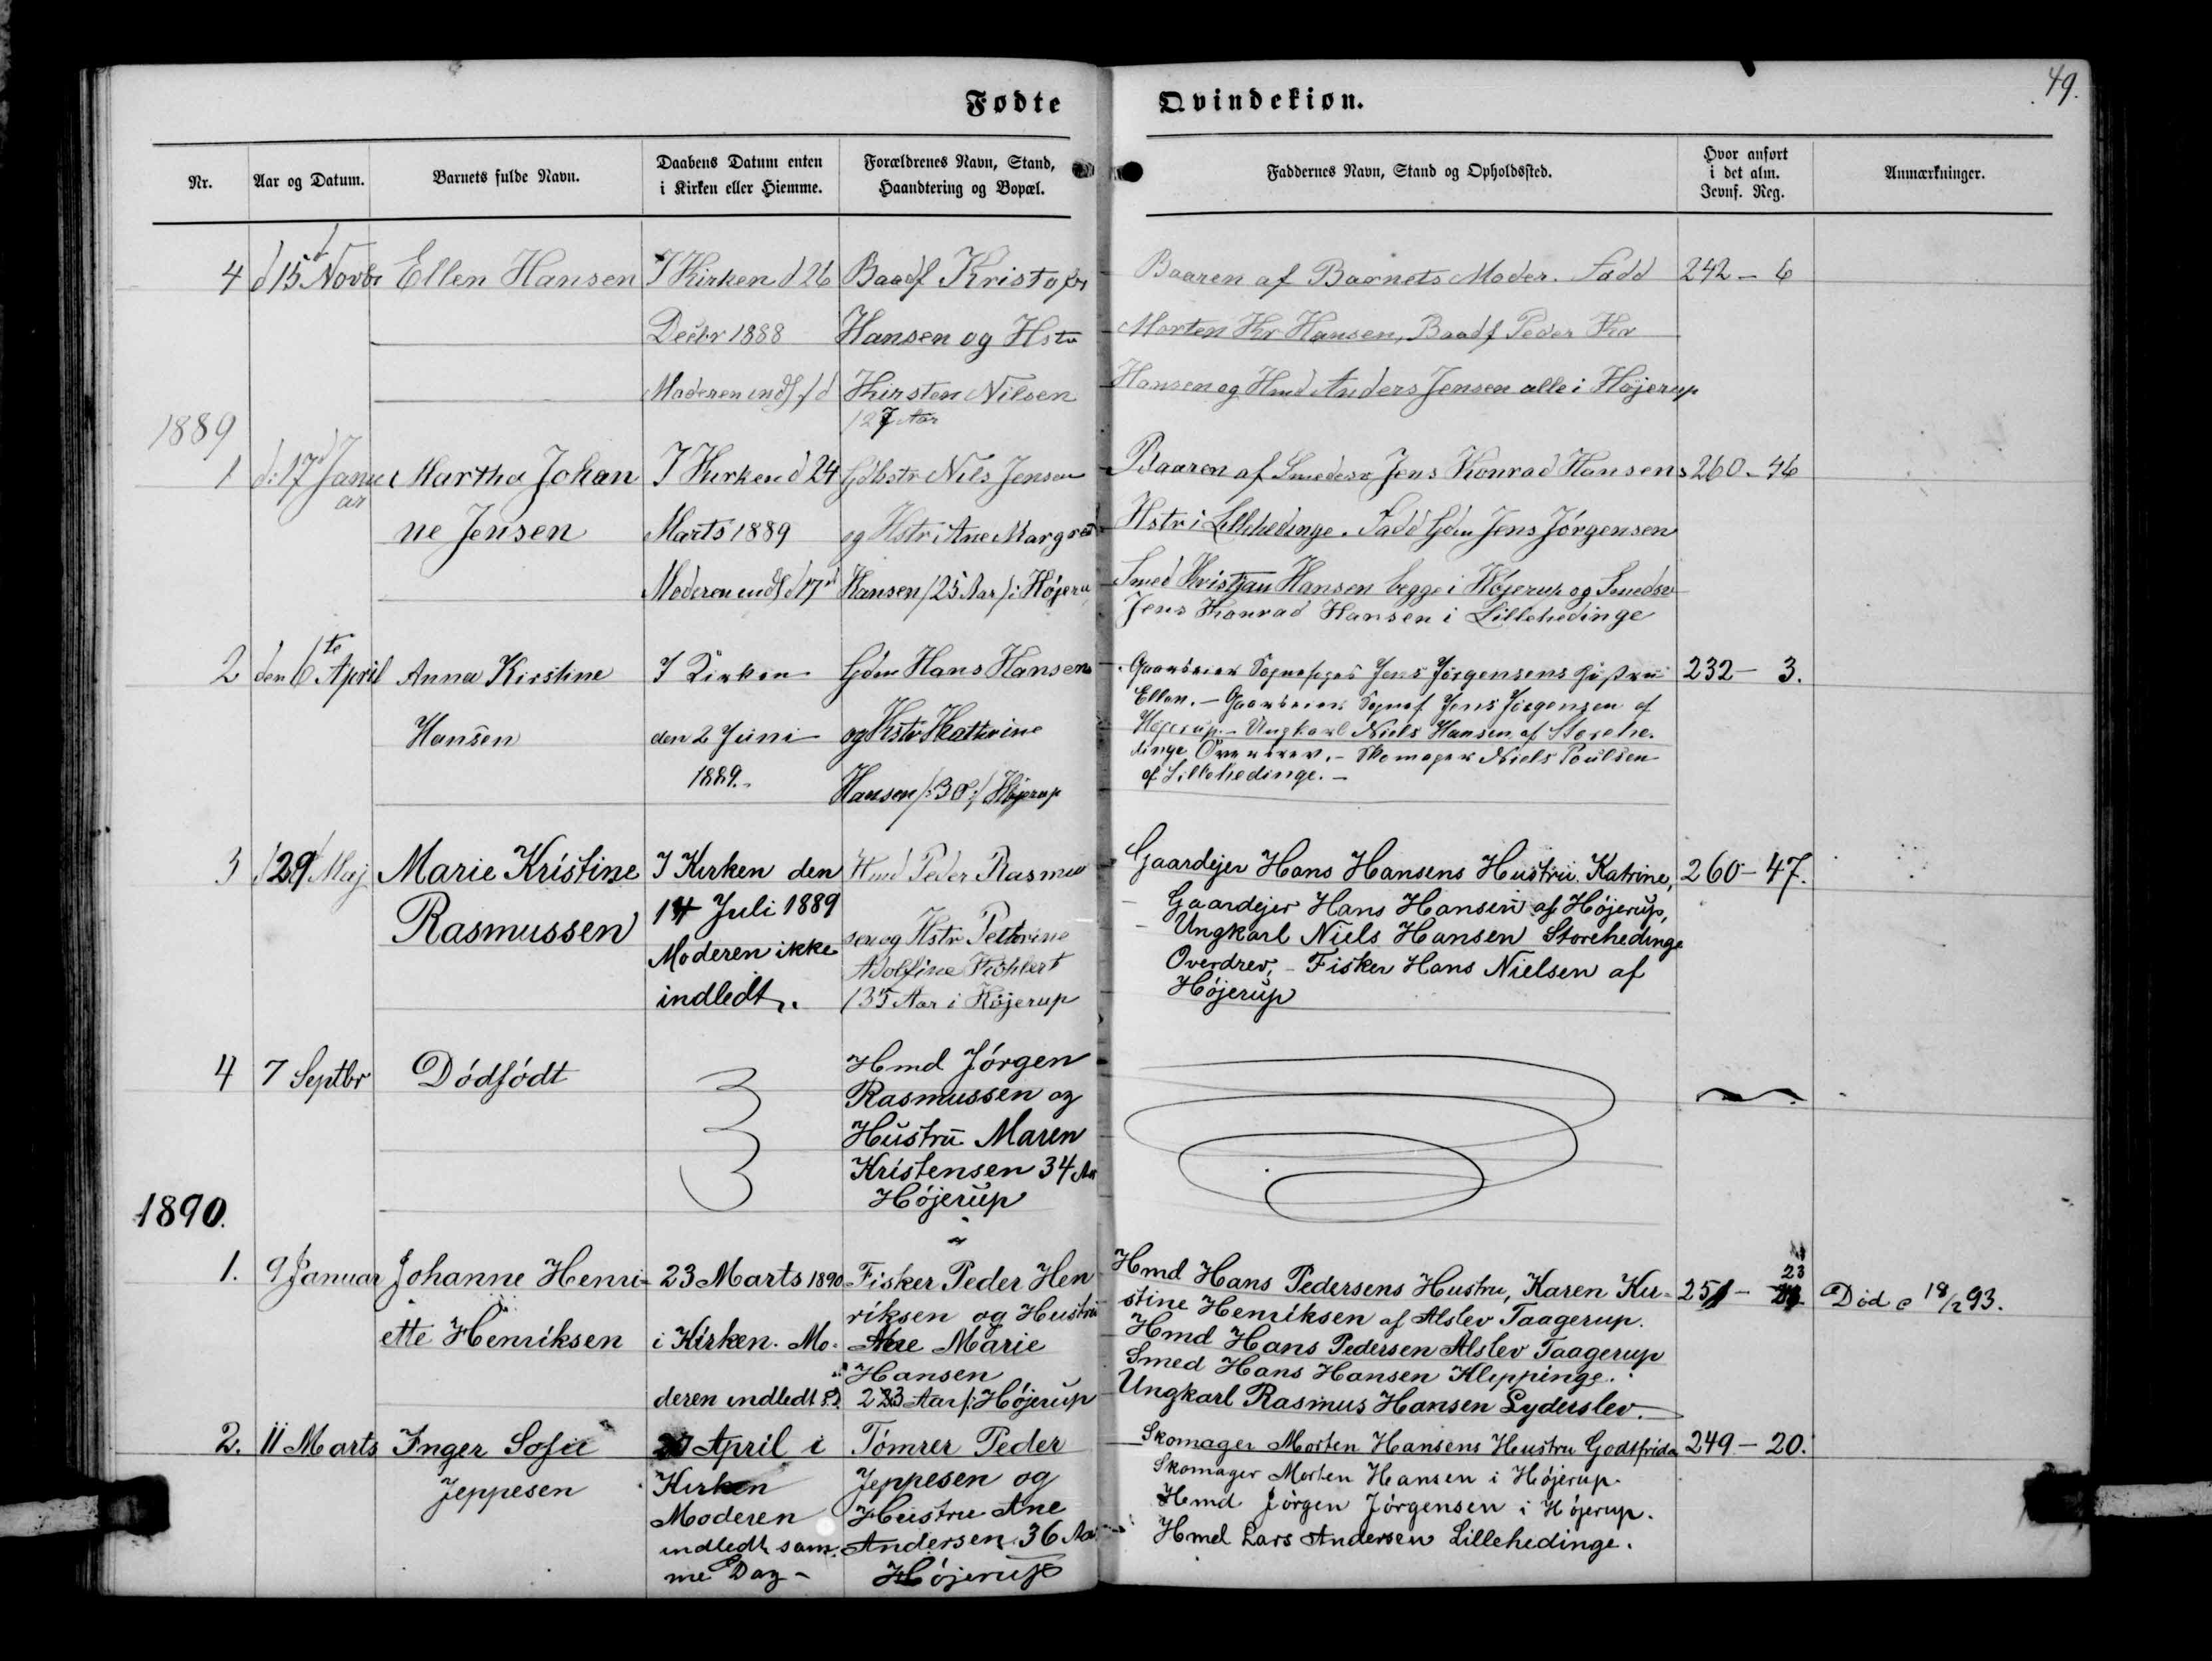 49.
Fødte Qvindekiøn.
Nr.
Aar og Datum.
Barnets fulde Navn.
Daabens Datum enten
i Kirken eller Hiemme.
Forældrenes Navn, Stand,
Haandtering og Bopæl.
Faddernes Navn, Stand og Opholdssted.
Hvor anført
i det alm.
Jevnf. Reg.
Anmærkninger.
4
d 15d Novbr
Ellen Hansen
I Kirken d 26
Decbr 1888
Moderen indl f d
Baadf Kristofer
Hansen og Hstr
Kirsten Nilsen
/27 Aar
Baaren af Barnets Moder. Fadd
Morten Kr Hansen, Baadf Peder Kr
Hansen og Hmd Anders Jensen alle i Højerup
242 - 6
1889
1
d: 17d Janu
ar
Martha Johan
ne Jensen
I Kirken d 24
Marts 1889
Moderen indl d 17d
Gdbstr Nils Jensen
og Hstr Ane Margret
Hansen /25 Aar/ i Højeru
Baaren af Smedesv Jens Konrad Hansens
Hstr i Lillehedinge. Fadd Gdm Jens Jórgensen
Smed Kristjan Hansen begge i Højerup og Smedsv
Jens Konrad Hansen i Lillehedinge
260 - 46
2
den 6te April
Anna Kirstine
Hansen
I Kirken
den 2 Juni
1889.
Gdm Hans Hansen
og Hstr Kathrine
Hansen /:30:/ Højerup
Gaardeier Sognefoged Jens Jørgensens Hustru
Ellen. - Gaardeier Sognef Jens Jørgensen af
Højerup. - Ungkarl Niels Hansen af Storehe-
dinge Overdrev. - Skomager Niels Poulsen
af Lillehedinge. -
232 - 3.
3
d 29d Maj
Marie Kristine
Rasmussen
I Kirken den
14 Juli 1889
Moderen ikke
indledt.
Hmd Peder Rasmus
sen og Hstr Petrine
Adolfine
/35 Aar i Højerup
Gaardejer Hans Hansens Hustru Katrine,
Gaardejer Hans Hansen af Højerup,
Ungkarl Niels Hansen Storehedinge
Overdrev, - Fisker Hans Nielsen af
Højerup
260 - 47.
4
7 Septbr
Dódfódt
Hmd Jórgen
Rasmussen og
Hustru Maren
Kristensen 34 Aar
Højerup
1890.
1.
9 Januar
Johanne Henri-
ette Henriksen
23 Marts 1890
i Kirken. Mo-
deren indledt s.D.
Fisker Peder Hen
riksen og Hustru
Ane Marie
Hansen
23 Aar /: Højerup
Hmd Hans Pedersens Hustru, Karen Kir-
stine Henriksen af Alslev Taagerup.
Hmd Hans Pedersen Alslev Taagerup
Smed Hans Hansen Klippinge.
Ungkarl Rasmus Hansen Lyderslev.
251 - 23
Død 18/2 93.
2.
11 Marts
Inger Sofie
Jeppesen
27 April i
Kirken
Moderen
indledt sam-
me Dag -
Tómrer Peder
Jeppesen og
Hustru Ane
Andersen. 36 Aar
Højerup
Skomager Morten Hansens Hustru Godtfrida
Skomager Morten Hansen i Højerup.
Hmd Jórgen Jórgensen i Højerup.
Hmd Lars Andersen Lillehedinge.
249 - 20.